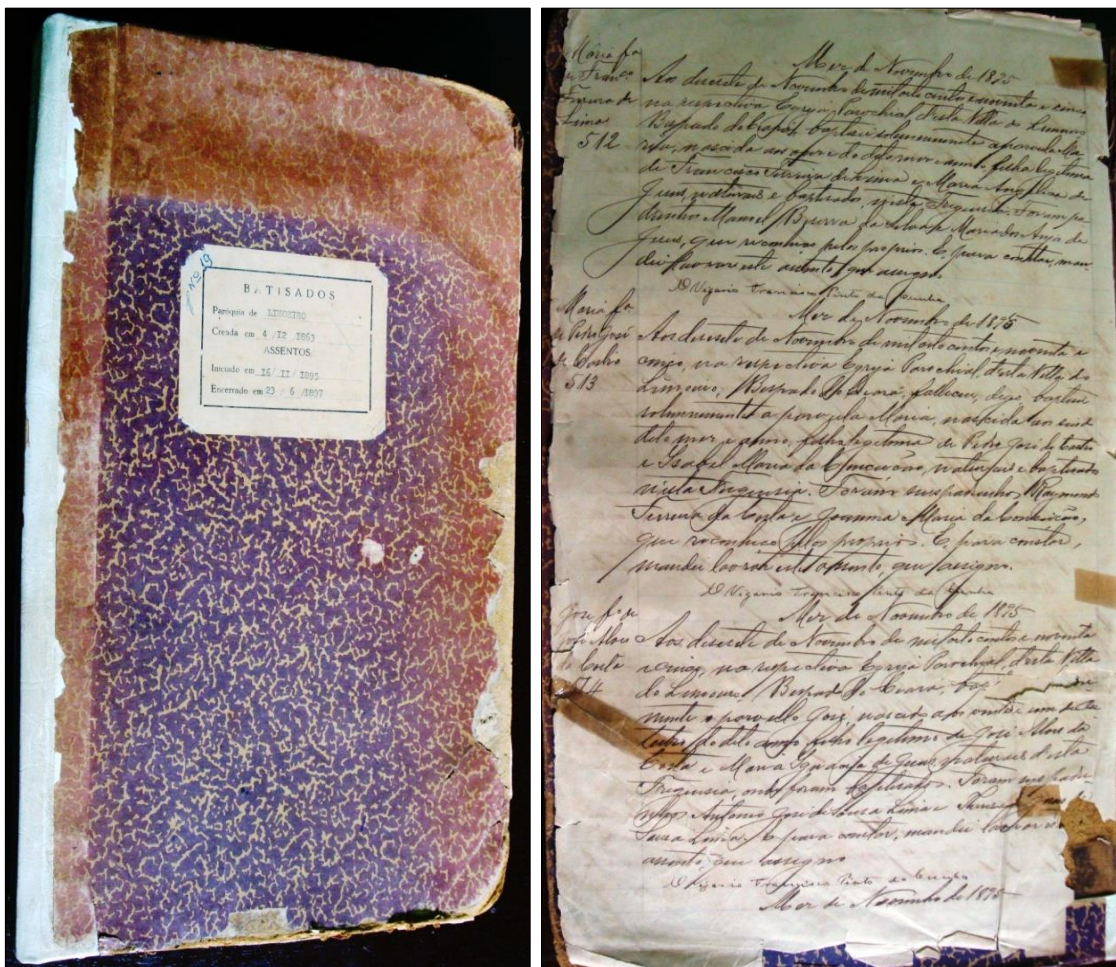 Nº 19
BATISADOS
Paróquia de LIMOEIRO
Creada em 4 /12 /1863
ASSENTOS
Iniciado em 16/ II/ 1895
Encerrado em 23 / 6 /1897
Maria fa
Lima
512
Mez de Novembro de 1895
Aos desesete de Novembro de mil oito centos e noventa e cinco
na respectiva Egreja Parochial desta Villa de Limoeiro
Bispado do Ceará, baptisei solemnemente a parvula Ma-
ria, nascida aos onze do dito mez e anno, filha legitima
de Francisco Ferreira de Lima e Maria Angelica de
Jesus, naturaes e baptisados nesta Freguesia. Foram pa-
drinhos Manoel Beserra da Silva e Maria dos Anjos de
Jesus, que reconheço pelos proprios. E, para constar, man-
dei lavrar este assento, que assigno.
O Vigario Francisco Pinto da
Maria fa.
de Pedro José
de Castro
513
Mez de Novembro de 1895
Aos desesete de Novembro de mil oito centos e noventa e
cinco, na respectiva Egreja Parochial desta Villa do
Limoeiro, Bispado do Ceará, digo, baptisei
solemnemente a parvula Maria, nascida aos
dito mez e anno, filha legitima de Pedro José de Castro
e Isabel Maria da Conceição, naturaes e baptisados
nesta Freguesia. Foram seus padrinhos Raymundo
Ferreira da Costa e Joanna Maria da Conceição,
que reconheço pelos proprios. E, para constar,
mandei lavrar este assento, que assigno.
O Vigario Francisco Pinto da
José fo de
José Alves
da Costa
Mez de Novembro de 1895
Aos desesete de Novembro de mil oito centos e noventa
e cinco, na respectiva Egreja Parochial, desta Villa
do Limoeiro Bispado do Ceará,
mente o parvulo José, nascido aos vinte e um de
do dito anno, filho legitimo de José Alves da
Costa e Maria de Jesus, naturaes desta
Freguesia, onde foram baptisados. Foram seus padri-
nhos Antonio José de Sousa Lima e
Sousa Lima. E, para constar, mandei lavrar
assento, que assigno
O Vigario Francisco Pinto da
Mez de Novembro de 1895